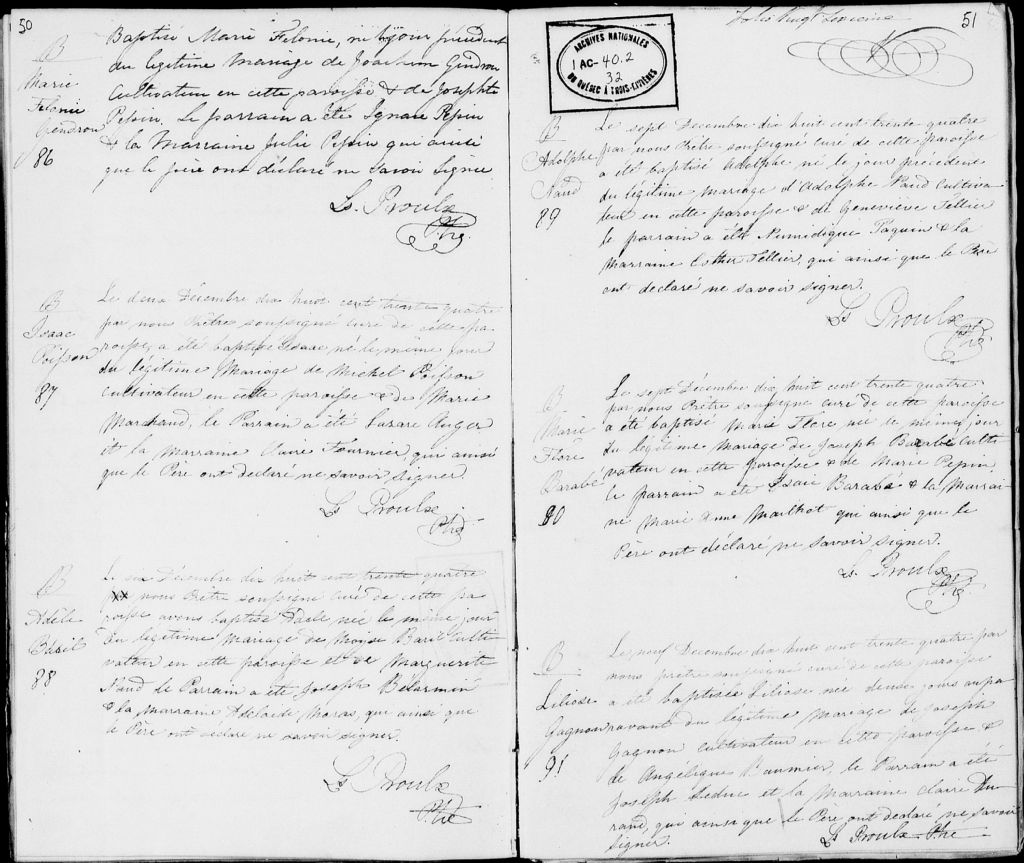 50
B
Marie
Felonie
Gendron
86
Baptisé Marie Felonie, né le jour précédent
du legitime mariage de Joachim Gendron
Cultivateur en cette paroisse & de Josephte
Pepin. Le parrain a été Ignace Pepin
& la Marraine Julie Pepin qui ainsi
que le père ont déclaré ne savoir signer
Ls. Proulx
Ptre
B
Isaac
Poisson
87
Le deux Décembre dix huit cent trente quatre
par nous Prêtre soussigné curé de cette pa
roisse, a été baptisé Isaac né le même jour
du légitime Mariage de Michel Poisson
cultivateur en cette paroisse & de Marie
Marchand, le Parrain a été Lazare Auger
et la Marraine Claire Fournier, qui ainsi
que le Père ont déclaré ne savoir signer.
Ls Proulx
Ptre
B
Adèle
Baril
88
Le six Décembre dix huit cent trente quatre
nous Prêtre soussigné curé de cette pa
roisse avons baptisé Adèle née le même jour
du légitime mariage de Moïse Baril Culti
vateur en cette paroisse et de Marguerite
Naud le Parrain a été Joseph Belarmin
& la marraine Adelaide Moras, qui ainsi que
le Père ont déclaré ne savoir signer.
Ls Proulx
Ptre
Folio Vingt Sixieme
51
ARCHIVES NATIONALES
1 AC-40.2
32
DU QUÉBEC À TROIS-RIVIÈRES
B
Adolphe
Naud
89
Le sept Decembre dix huit cent trente quatre
par nous Prêtre soussigné curé de cette paroisse
a été baptisé Adolphe né le jour précédent
du légitime mariage d'Adolphe Naud Cultiva
teur en cette paroisse & de Geneviève Tellier
le parrain a été Numidique Paquin & la
Marraine Esther Tellier, qui ainsi que le Père
ont declaré ne savoir signer.
Ls Proulx
Ptre
B
Marie
Flore
Barabé
90
Le sept Décembre dix huit cent trente quatre
par nous Prêtre soussigné curé de cette paroisse
a été baptisé Marie Flore née le même jour
du légitime mariage de Joseph Barabé Culti
vateur en cette paroisse & de Marie Pepin
le parrain a été Isaïe Barabé & la Marrai-
ne Marie Anne Mailhot qui ainsi que le
Père ont déclaré ne savoir signer.
Ls. Proulx
Ptre
B
Liliose
Gagnon
91
Le neuf Decembre dix huit cent trente quatre par
nous prêtre soussigné curé de cette paroisse
a été baptisée Liliose née deux jours aupa
ravant du légitime mariage de Joseph
Gagnon cultivateur en cette paroisse &
de Angélique Baumier, le Parrain a été
Joseph Leduc et la Marraine Claire Du
rand, qui ainsi que le Père ont declaré ne savoir
signer.
Ls Proulx Ptre